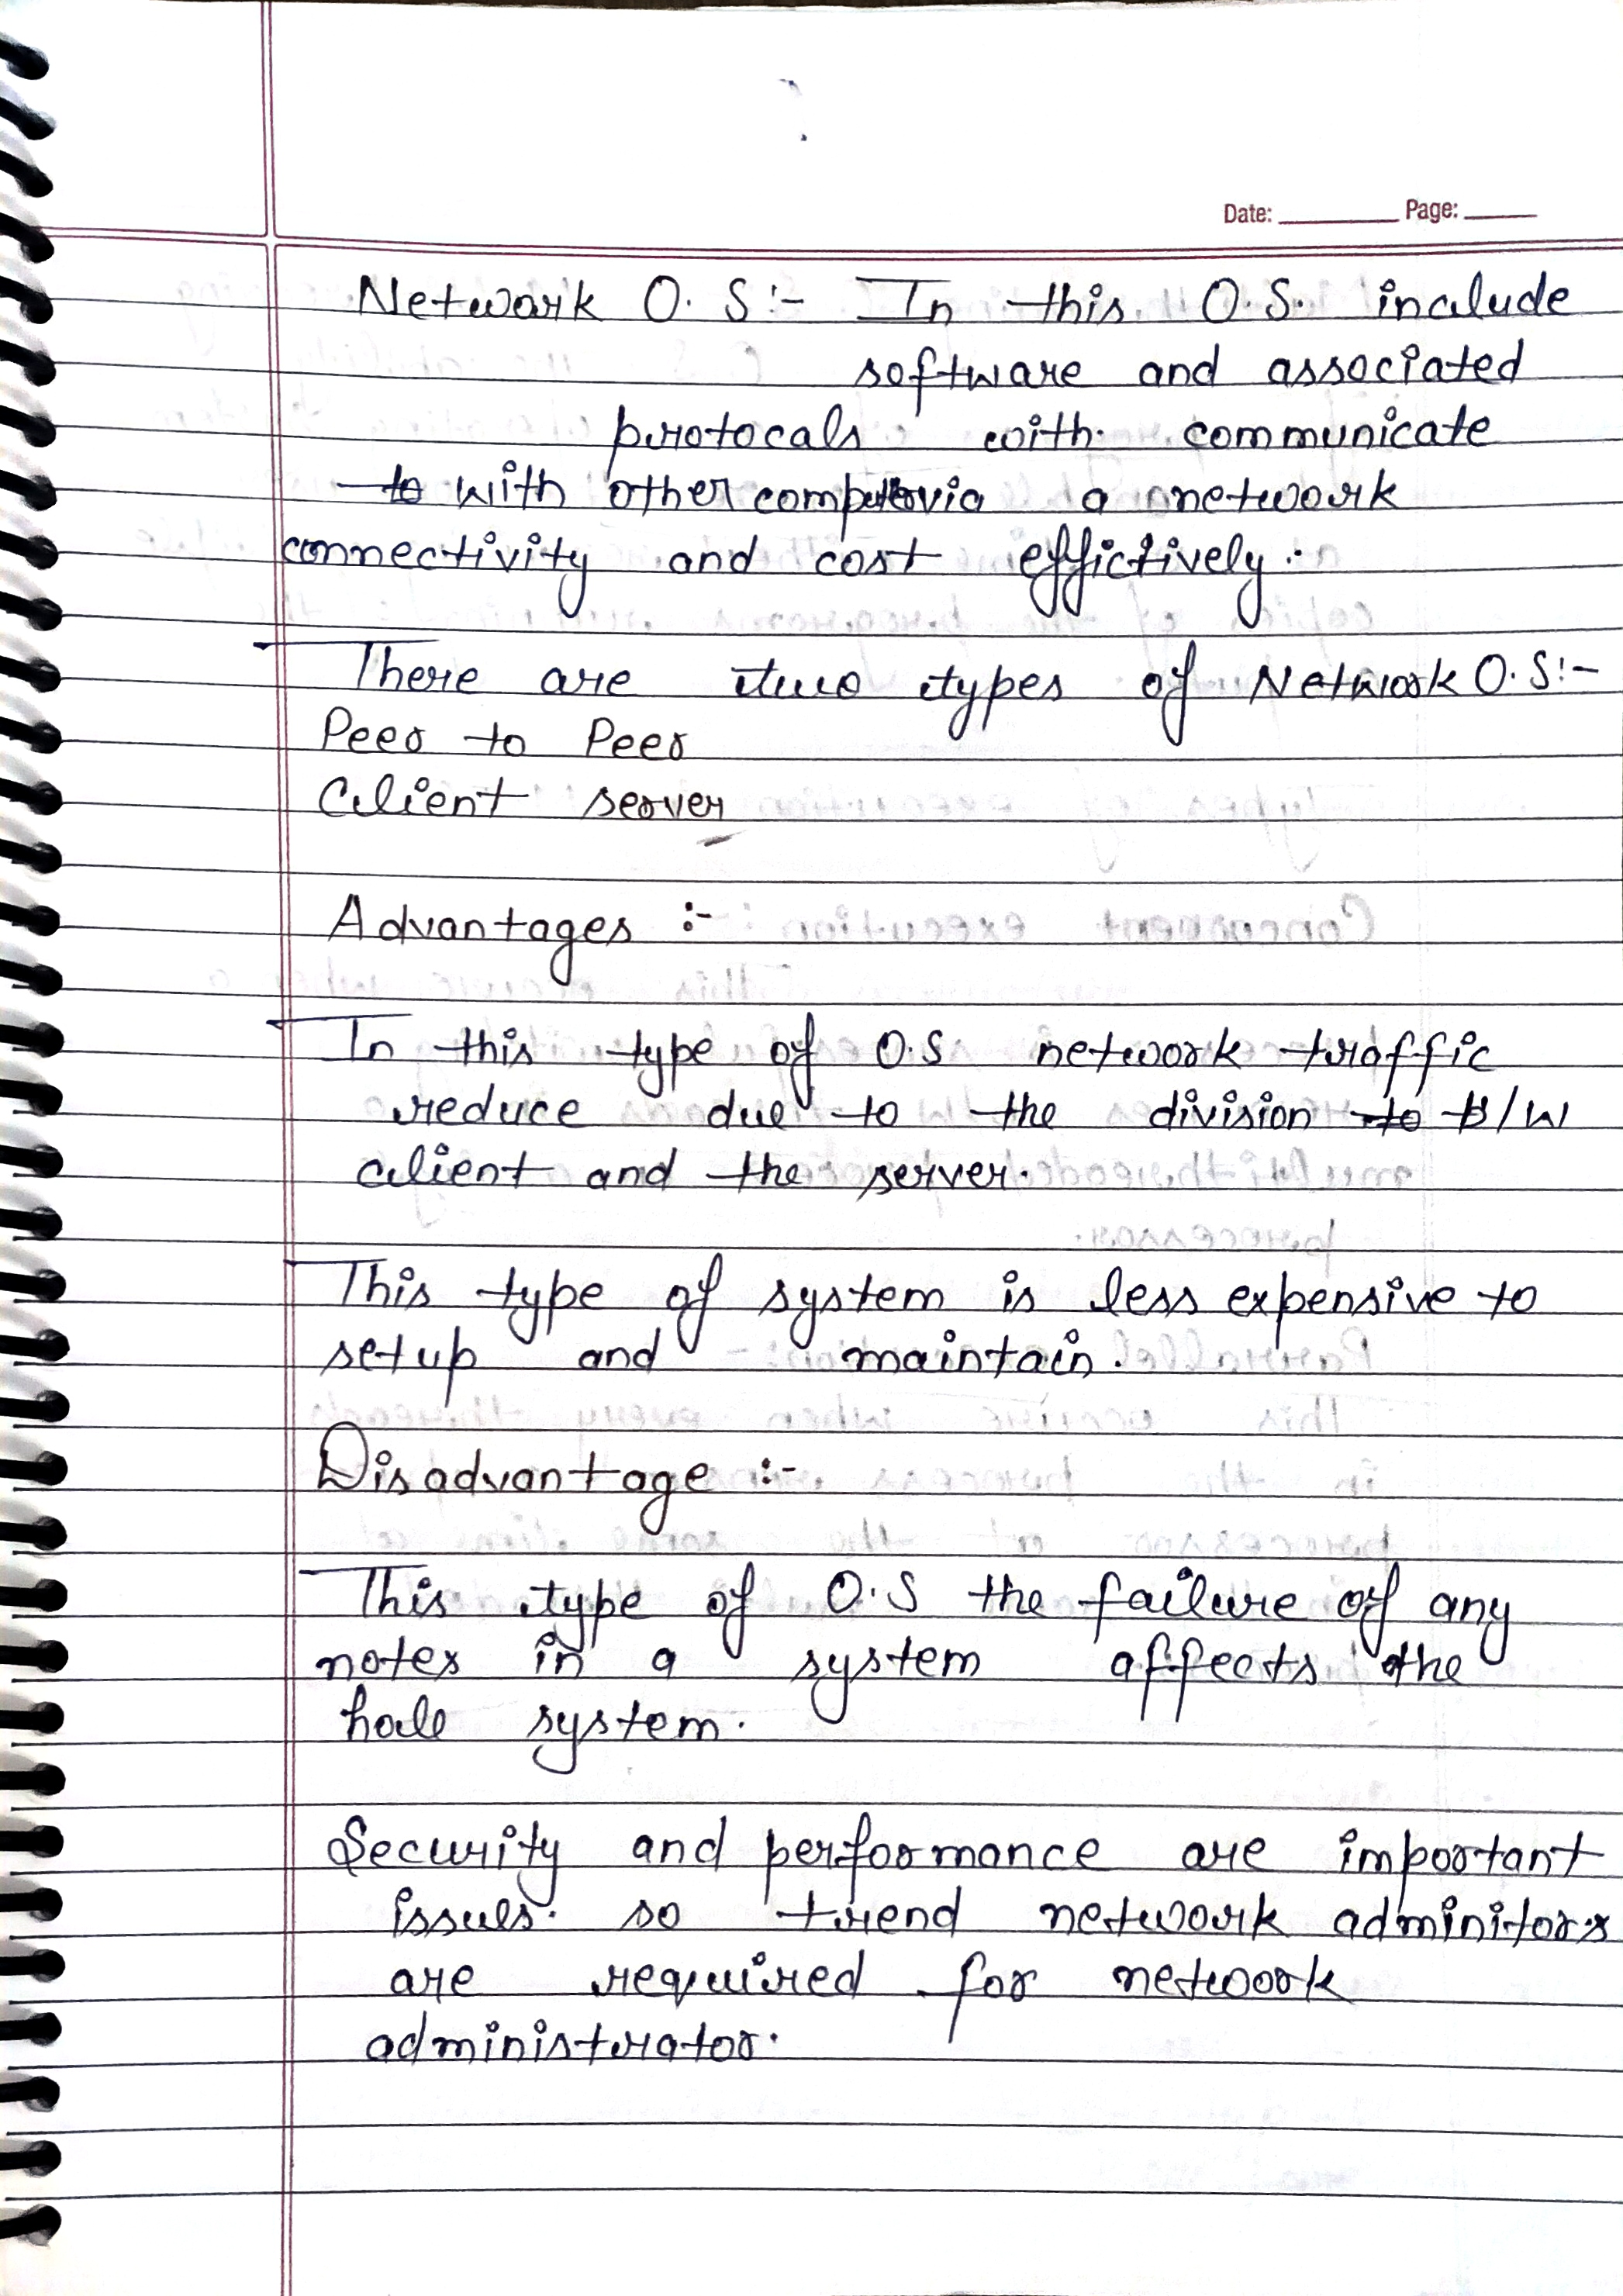 Date: Page:
Network O.S:- In this O.S. include
software and associated
protocals with communicate
to with other computer via a network
connectivity and cost effictively.
There are two types of Network O.S:-
Peer to Peer
Client server
Advantages :-
In this type of O.S network traffic
reduce due to the division to B/W
client and the server.
This type of system is less expensive to
setup and maintain.
Disadvantage :-
This type of O.S the failure of any
notes in a system affects the
hole system.
Security and performance are important
issues. so trend network adminitors
are required for network
administrator.